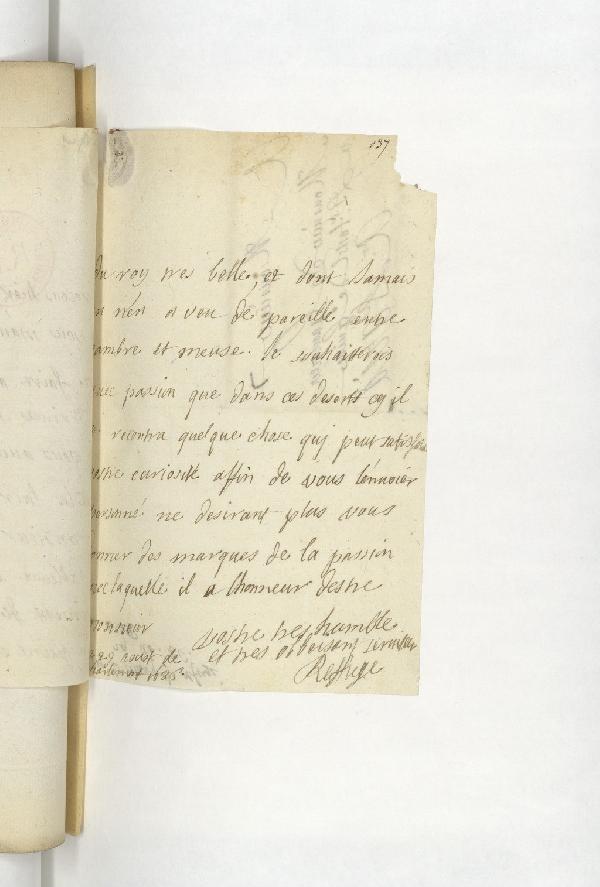 137
du roy tres belle, et dont Jamais
n'en a veu de pareille entre
sambre et meuse. Je souhaiterois
avec passion que dans ces deserts cy il
recontra quelque chose quj peut satisfaire
vostre curiosité affin de vous l'ennoier
personne ne desirant plus vous
donner des marques de la passion
avec laquelle il a l'honneur destre
monsieur
vostre tres humble
et tres obeissant serviteur
Refuge
29 aoust de
1635